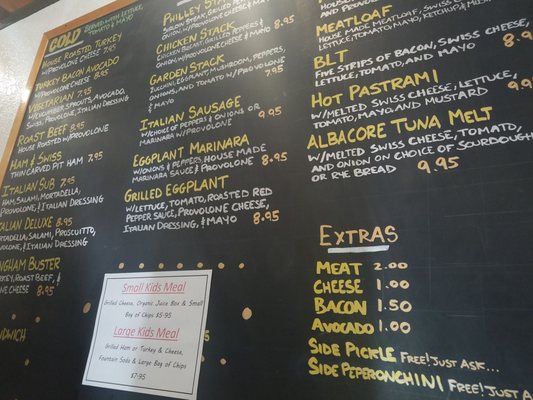 COLD SERVED WITH LETTUCE,
TOMATO & MAYO
HOUSE ROASTED TURKEY
W/PROVOLONE CHEESE 7.95
TURKEY BACON AVOCADO
W/PROVOLONE CHEESE 8.95
VEGETARIAN 7.95
W/CUCUMBER, SPROUTS, AVOCADO,
SWISS, PROVOLONE, ITALIAN DRESSING
ROAST BEEF 8.95
HOUSE ROASTED W/PROVOLONE
HAM & SWISS
THIN CARVED PIT HAM 7.95
ITALIAN SUB 7.95
HAM, SALAMI, MORTADELLA,
PROVOLONE, & ITALIAN DRESSING
ITALIAN DELUXE 8.95
MORTADELLA, SALAMI, PROSCUITTO,
& ITALIAN DRESSING
NGHAM BUSTER
KEY, ROAST BEEF, &
NE CHEESE 8.95
DWICH
PHILLEY
SIRLOIN STEAK, GRILLED
ONION, W/PROVOLONE CHEESE & MAYO
CHICKEN STACK 8.95
GRILLED PEPPERS &
ONION, W/PROVOLONE CHEESE AND MAYO
GARDEN STACK
ZUCCHINI, EGGPLANT, MUSHROOM, PEPPERS,
ONIONS, AND TOMATO W/PROVOLONE
& MAYO 7.95
ITALIAN SAUSAGE
W/CHOICE OF PEPPERS & ONIONS OR
MARINARA W/PROVOLONE 8.95
EGGPLANT MARINARA
W/ONIONS & PEPPERS, HOUSE MADE
MARINARA SAUCE & PROVOLONE 8.95
GRILLED EGGPLANT
W/LETTUCE, TOMATO, ROASTED RED
PEPPER SAUCE, PROVOLONE CHEESE,
ITALIAN DRESSING, & MAYO 8.95
Small Kids Meal
Grilled Cheese, Organic Juice Box & Small
Bag of Chips $5.95
Large Kids Meal
Grilled Ham or Turkey & Cheese,
Fountain Soda & Large Bag of Chips
$7.95
MEATLOAF
HOUSE MADE MEATLOAF, SWISS,
LETTUCE, TOMATO, MAYO, KETCHUP &
BLT
FIVE STRIPS OF BACON, SWISS CHEESE,
LETTUCE, TOMATO, AND MAYO 8.9
HOT PASTRAMI
W/MELTED SWISS CHEESE, LETTUCE,
TOMATO, MAYO, AND MUSTARD 9.9
ALBACORE TUNA MELT
W/MELTED SWISS CHEESE, TOMATO,
AND ONION ON CHOICE OF SOURDOUGH
OR RYE BREAD 9.95
EXTRAS
MEAT 2.00
CHEESE 1.00
BACON 1.50
AVOCADO 1.00
SIDE PICKLE FREE! JUST ASK...
SIDE PEPERONCHINI FREE! JUST ASK